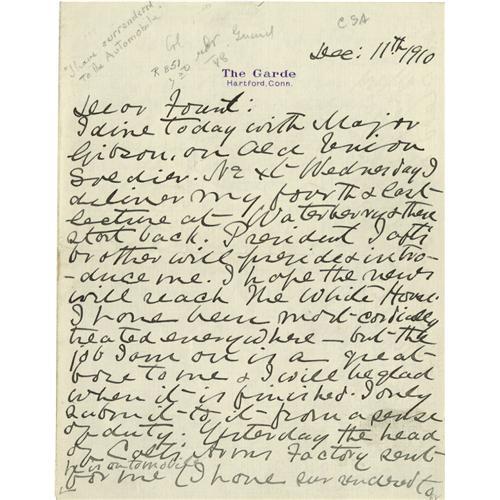 "I have surrendered
to the Automobile
CSA
Col
R 851
Guard
Dec: 11th 1910
The Garde
Hartford, Conn.
Dear Fount:
I dine today with Major
Gibson, an Old Union
Soldier. Next Wednesday I
deliver my fourth & last
lecture at Waterberry & then
start back. President Taft's
brother will preside & intro-
-duce me. I hope the news
will reach The White House.
I have been most cordially
treated everywhere - but the
job I am on is a great
bore to me & I will be glad
when it is finished. I only
submit to it from a sense
of duty. Yesterday the head
of Colts Arms Factory sent
his automobile
for me (I have surrendered to